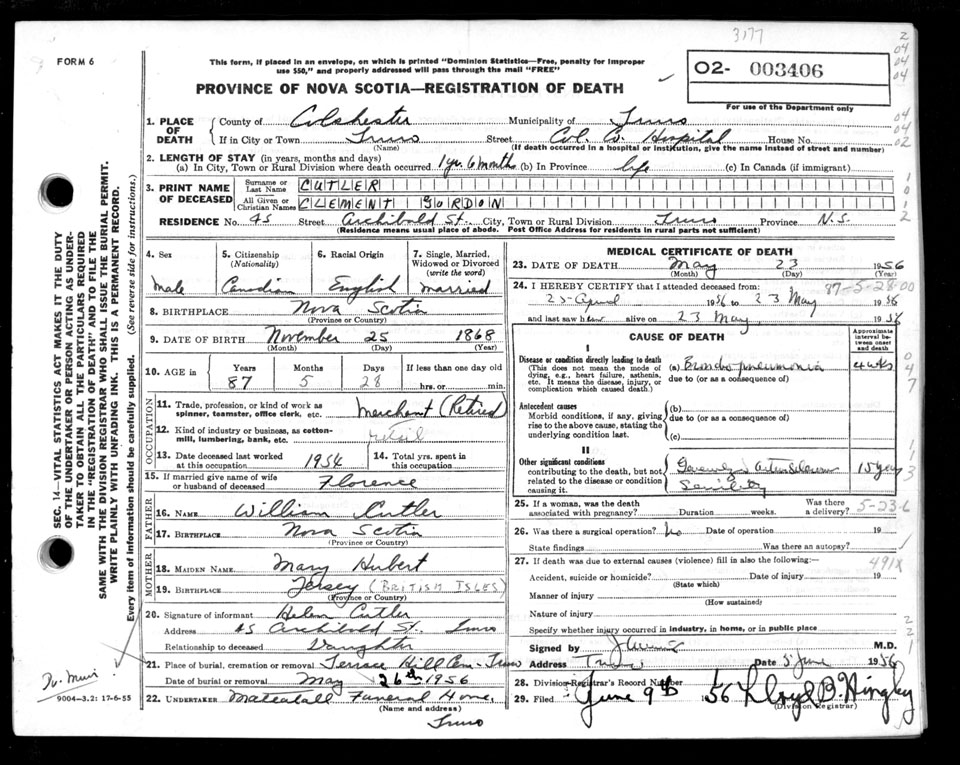 3177
FORM 6
This form, if placed in an envelope, on which is printed "Dominion Statistics—Free, penalty for improper
use $50," and properly addressed will pass through the mail "FREE"
02- 003406
For use of the Department only
PROVINCE OF NOVA SCOTIA—REGISTRATION OF DEATH
1. PLACE OF DEATH
County of Colchester Municipality of Truro
If in City or Town Truro Street Col. Co. Hospital House No.
(Name) (If death occurred in a hospital or institution, give the name instead of street and number)
2. LENGTH OF STAY (in years, months and days)
(a) In City, Town or Rural Division where death occurred 1 yr. 6 months (b) In Province life (c) In Canada (if immigrant)
3. PRINT NAME OF DECEASED
Surname or Last Name CUTLER
All Given or Christian Names CLEMENT GORDON
RESIDENCE No. 45 Street Archibald St. City, Town or Rural Division Truro Province N.S.
(Residence means usual place of abode. Post Office Address for residents in rural parts not sufficient)
4. Sex
male
5. Citizenship (Nationality)
Canadian
6. Racial Origin
English
7. Single, Married, Widowed or Divorced (write the word)
married
8. BIRTHPLACE Nova Scotia
(Province or Country)
9. DATE OF BIRTH November 25 1868
(Month) (Day) (Year)
10. AGE in Years Months Days If less than one day old
87 5 28 hrs. or min.
OCCUPATION
11. Trade, profession, or kind of work as spinner, teamster, office clerk, etc. Merchant (Retired)
12. Kind of industry or business, as cotton-mill, lumbering, bank, etc. retail
13. Date deceased last worked at this occupation 1954
14. Total yrs. spent in this occupation
15. If married give name of wife or husband of deceased Florence
FATHER
16. NAME William Cutler
17. BIRTHPLACE Nova Scotia
(Province or Country)
MOTHER
18. MAIDEN NAME Mary Hubert
19. BIRTHPLACE Jersey (BRITISH ISLES)
(Province or Country)
20. Signature of informant Helen Cutler
Address 45 Archibald St. Truro
Relationship to deceased Daughter
21. Place of burial, cremation or removal Terrace Hill Cem - Truro
Date of burial or removal May 26th 1956
22. UNDERTAKER Funeral Home,
(Name and address)
Truro
MEDICAL CERTIFICATE OF DEATH
23. DATE OF DEATH May 23 1956
(Month) (Day) (Year)
87-5-28-00
24. I HEREBY CERTIFY that I attended deceased from:
25 April 1956 to 23 May 1956
and last saw h alive on 23 May 1956
CAUSE OF DEATH
Approximate interval between onset and death
I
Disease or condition directly leading to death
(This does not mean the mode of dying, e.g., heart failure, asthenia, etc. It means the disease, injury, or complication which caused death.)
(a) Broncho pneumonia 4 wks
due to (or as a consequence of)
Antecedent causes
Morbid conditions, if any, giving rise to the above cause, stating the underlying condition last.
(b)
due to (or as a consequence of)
(c)
II
Other significant conditions
contributing to the death, but not related to the disease or condition causing it.
15 years
Senility
25. If a woman, was the death associated with pregnancy? Duration weeks. Was there a delivery?
5-23-6
26. Was there a surgical operation? No Date of operation 19
State findings Was there an autopsy?
27. If death was due to external causes (violence) fill in also the following:— 491X
Accident, suicide or homicide? Date of injury 19
(State which)
Manner of injury
(How sustained)
Nature of injury
Specify whether injury occurred in industry, in home, or in public place
Signed by M.D.
Address Truro Date 5 June 1956
28. Division Registrar's Record Number
29. Filed June 9th 1956 Lloyd B. Hingley
(Division Registrar)
SEC. 14—VITAL STATISTICS ACT MAKES IT THE DUTY
OF THE UNDERTAKER OR PERSON ACTING AS UNDER-
TAKER TO OBTAIN ALL THE PARTICULARS REQUIRED
IN THE "REGISTRATION OF DEATH" AND TO FILE THE
SAME WITH THE DIVISION REGISTRAR WHO SHALL ISSUE THE BURIAL PERMIT.
WRITE PLAINLY WITH UNFADING INK. THIS IS A PERMANENT RECORD.
Every item of information should be carefully supplied. (See reverse side for instructions.)
Dr. Muir
9004-3.2: 17-6-55